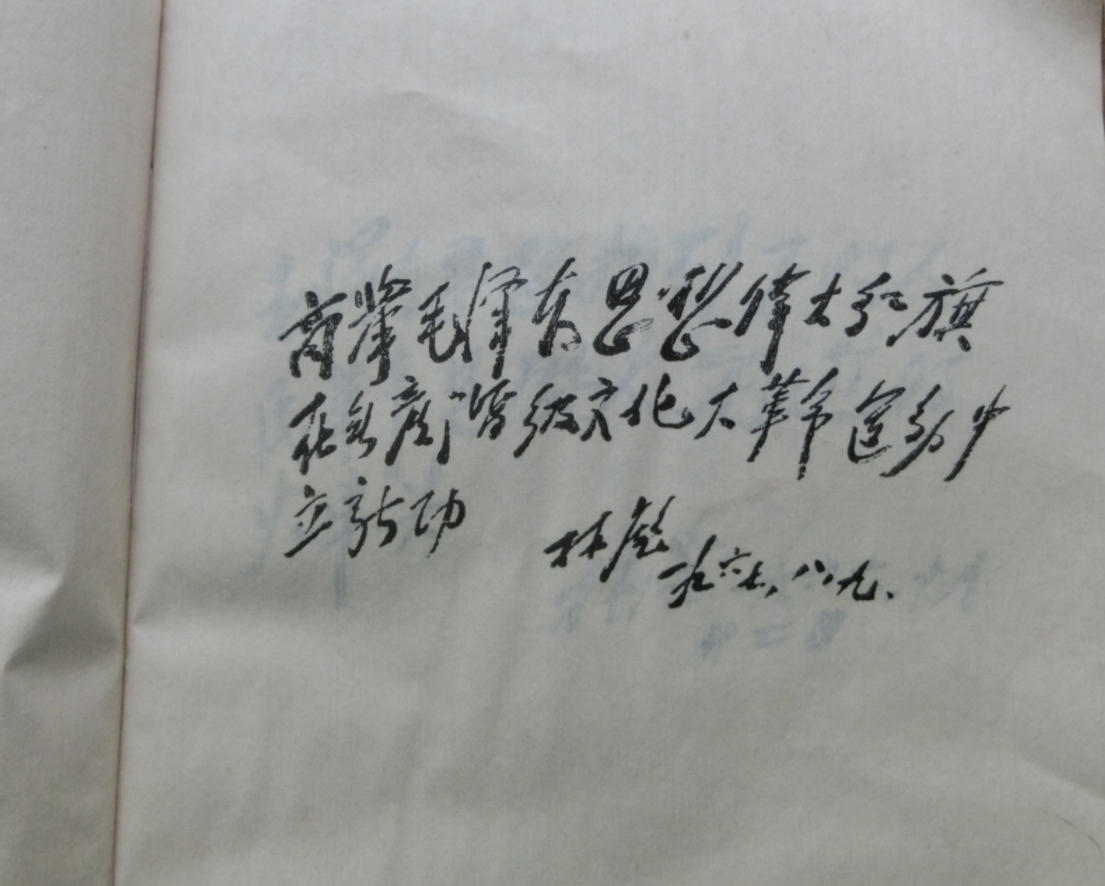 高举毛泽东思想伟大红旗
在无产阶级文化大革命运动中
立新功
林彪
一九六七、八、九、